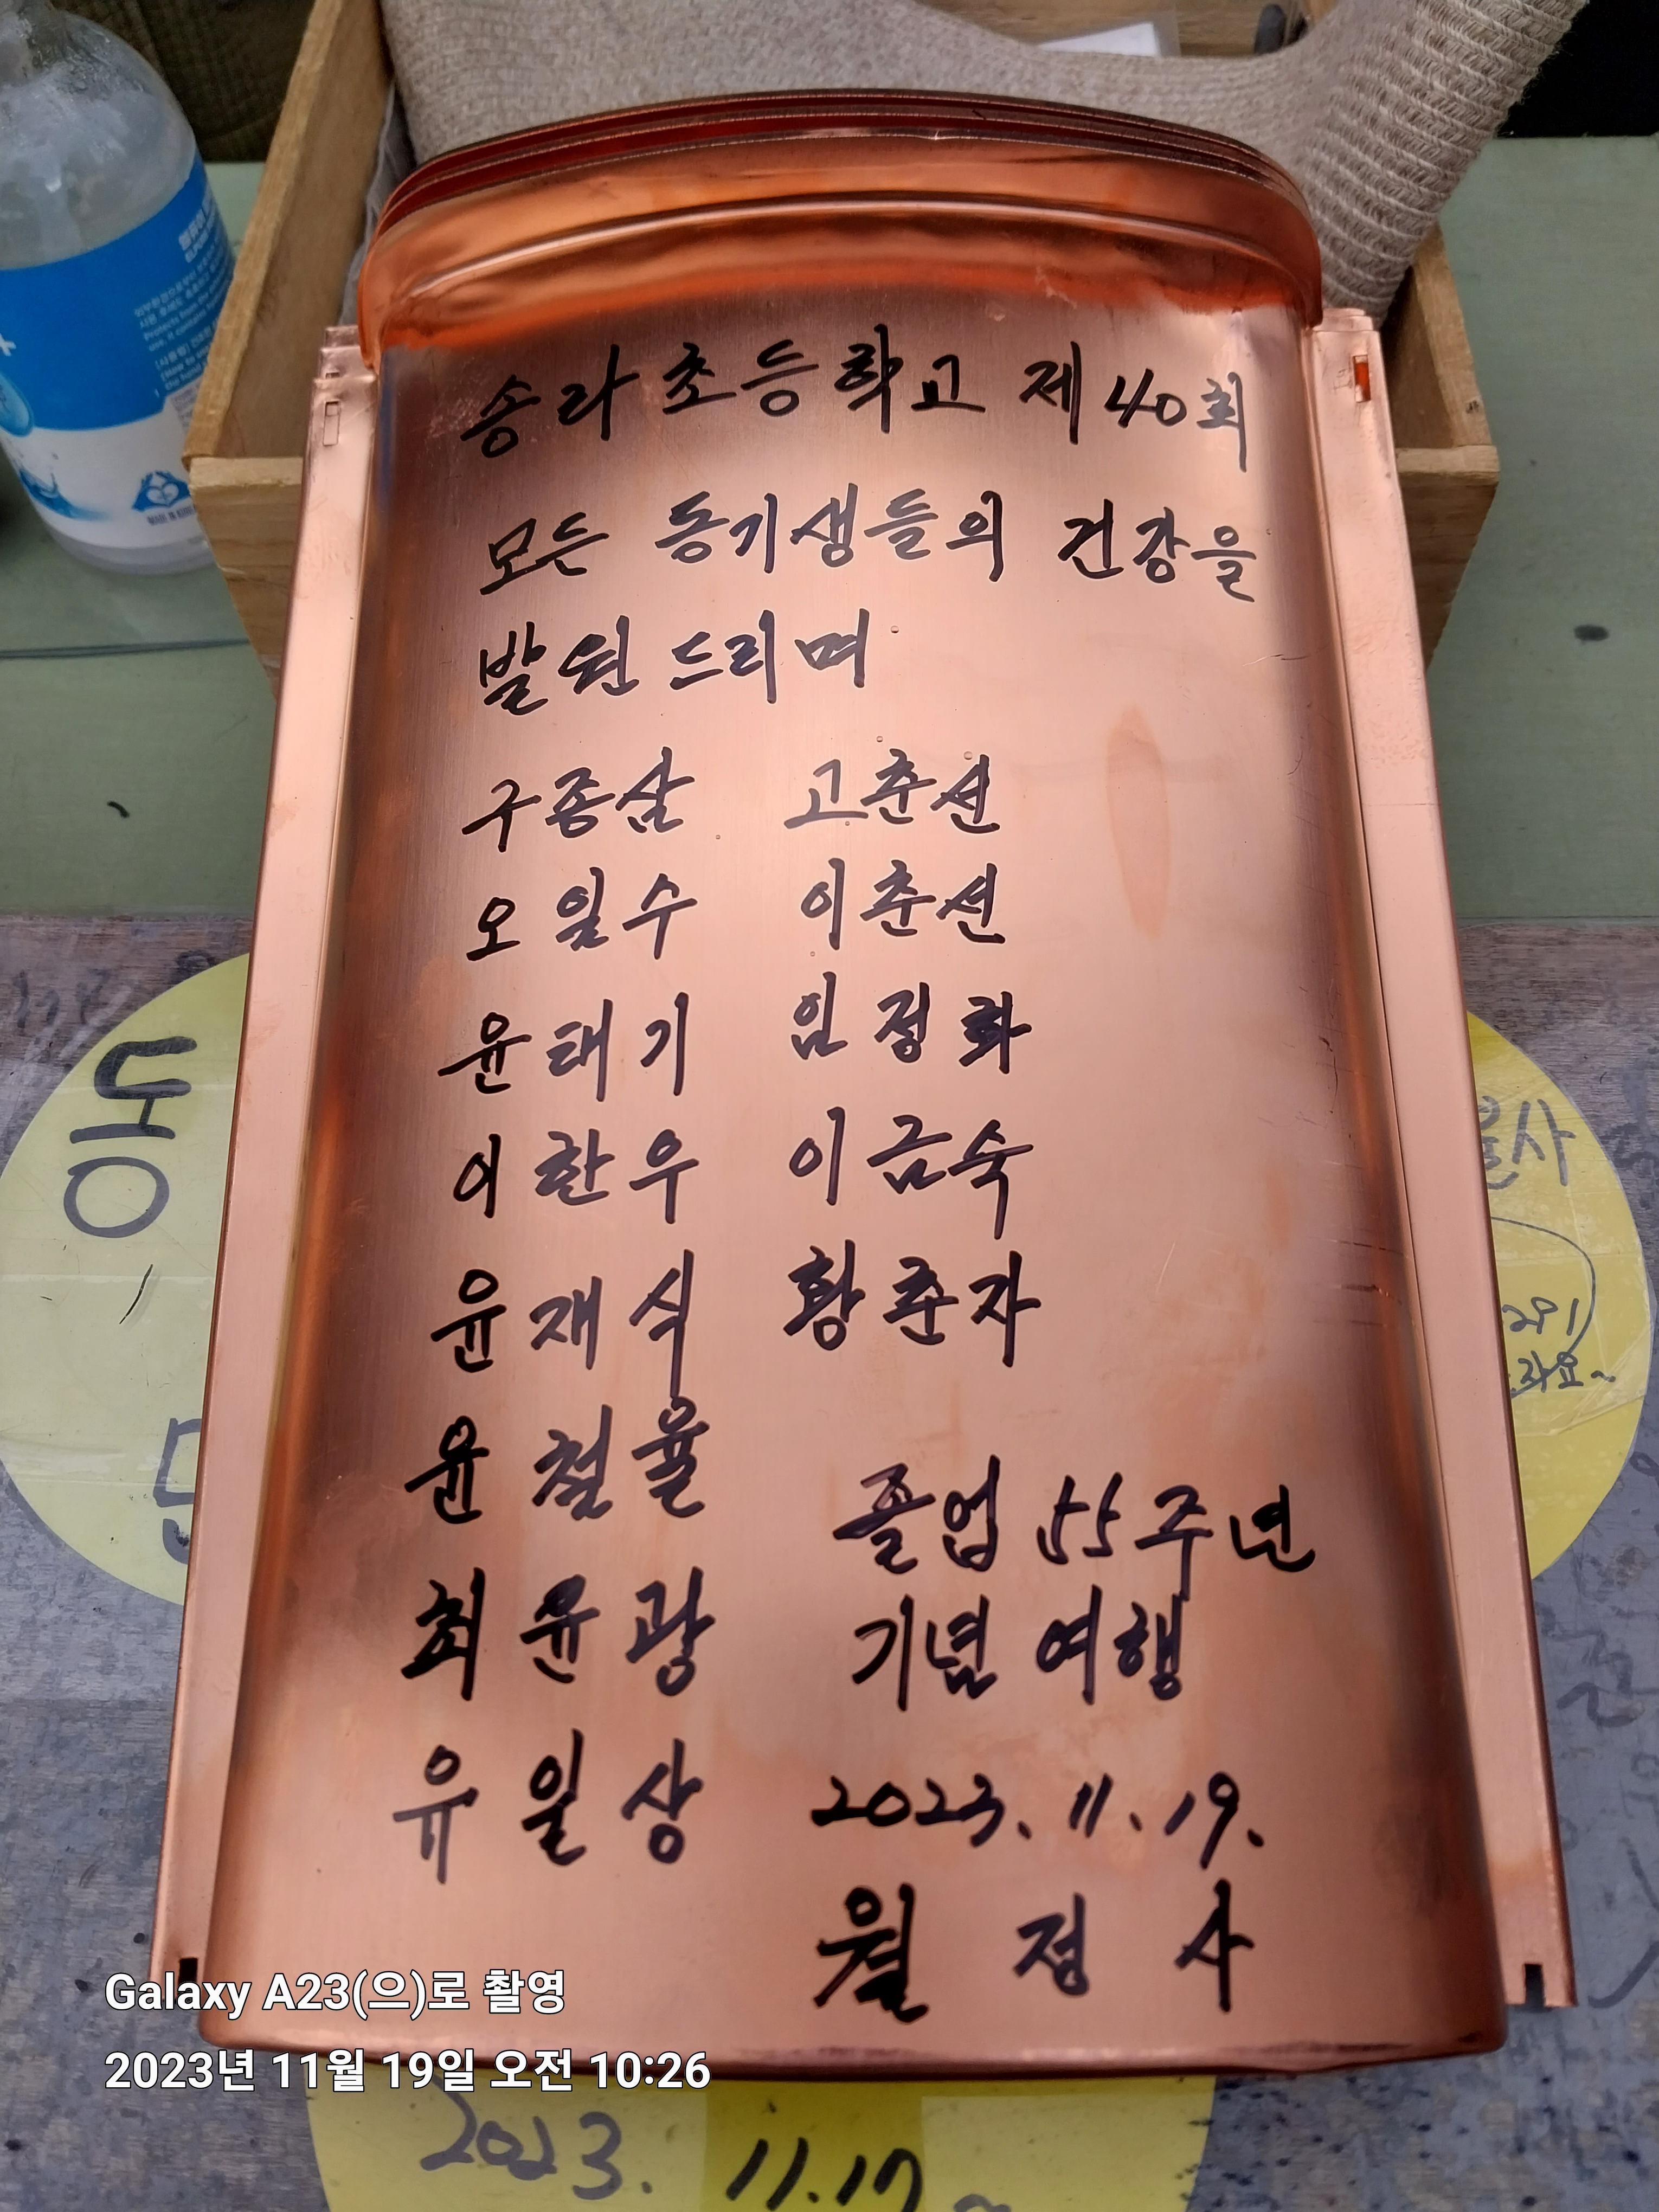 송라초등학교 제40회
모든 동기생들의 건강을
발원드리며
구종삼 고춘선
오일수 이춘선
윤태기 임정화
이한우 이금숙
윤재식 황춘자
윤철율
최윤광
유일상
졸업 55주년
기념 여행
2023. 11. 19.
월정사
동
2023. 11.17~
MADE IN KOREA
Galaxy A23(으)로 촬영
2023년 11월 19일 오전 10:26